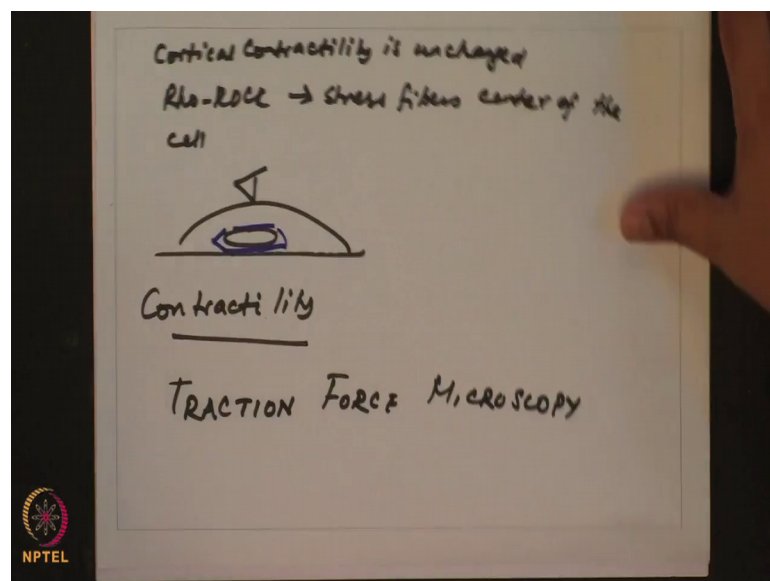 Cortical Contractility is unchanged
Rho-ROCK → stress fibers center of the
cell
Contractility
TRACTION FORCE MICROSCOPY
NPTEL